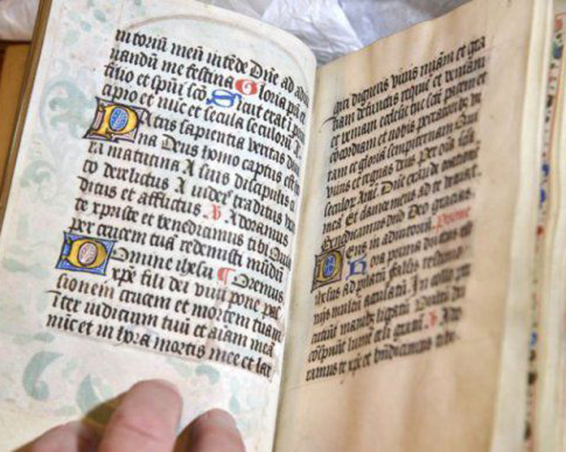 in toriū meū intēde Dñe ad ad
uandū me festina Gloria pa
tri et spūi scō Sicut erat ī prin
cipio et nūc et secula seculorū
Patris sapientia veritas di
na Deus homo captus est
ra matutina A suis discipulis
to derelictus A iudeis traditus ven
ditus et afflictus Adoramus
te xpriste et benedicimus tibi Quia
per crucem tuā redemisti mūdū
Domine ihesu Oremus
xpē fili dei viui pone pas
sionem crucem et mortem tuam
īter iudicium tuū et aīam meā
nūc et in hora mortis mee et lar
giri digneris viuis misām et gra
tiam defunctis requiē et veniam
et ecclesie tue scē pacem et
concordiam et nobis peccatoribus vi
tam et gloriā sempiternam Qui
viuis et regnas deus Per oīa secula
seculor Amē Dñe exaudi orationē
meā Et clamor meus ad te veniat
Benedicamus dño Deo gracias
Deus in adiutoriū
hora prima ductus est
ihesus Ad pilatū falsis testimo
niis multū accusatū In collo per
cutiūt manibus ligatū
cōspuūt lumē celi gratū Ado
ramus te xpē et bñdicimus tibi